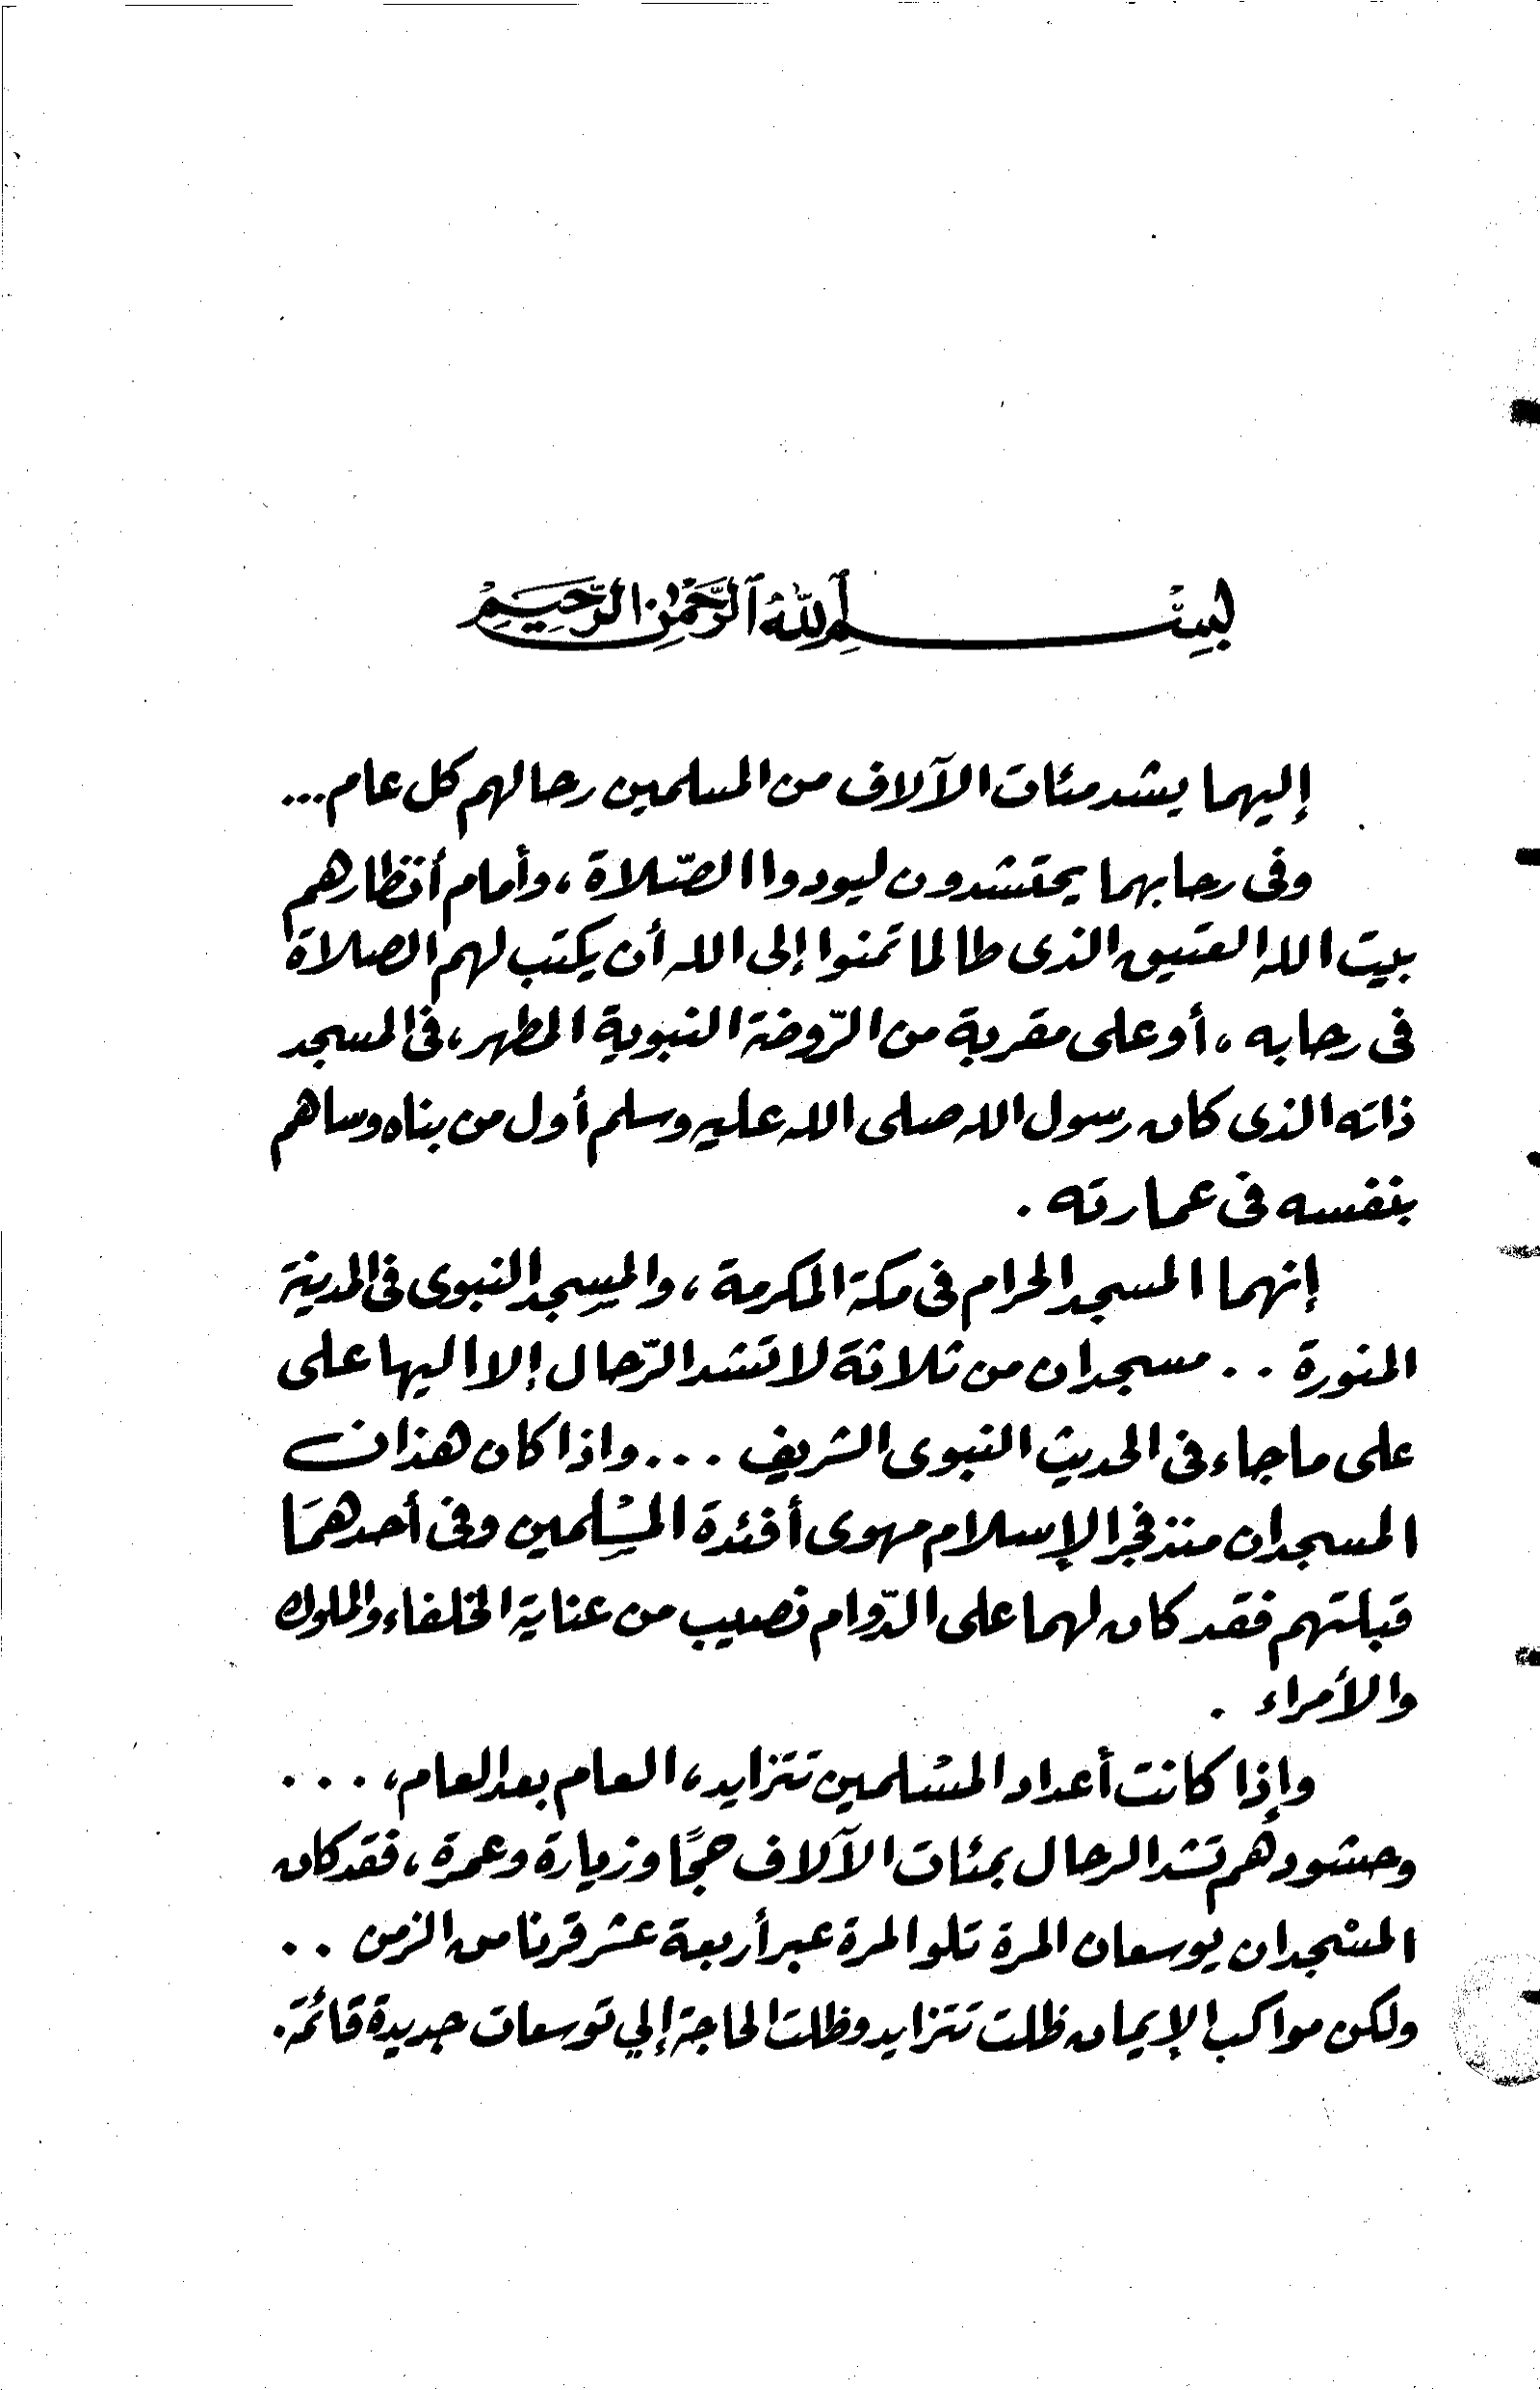 بسم الله الرحمن الرحيم
إليهما يشد مئات الآلاف من المسلمين رحالهم كل عام...
وفى رحابهما يحتشدون ليودوا الصّلاة، وأمام أنظارهم
بيت الله العتيق الذى طالما تمنوا إلى الله أن يكتب لهم الصلاة
فى رحابه، أو على مقربة من الرّوضة النبوية المطهر، فى المسجد
ذاته الذى كان رسول الله صلى الله عليه وسلم أول من بناه وساهم
بنفسه فى عمارته.
إنهما المسجد الحرام فى مكة المكرمة، والمسجد النبوى فى المدينة
المنورة .. مسجدان من ثلاثة لا تشد الرّحال إلا اليها على
على ما جاء فى الحديث النبوى الشريف ... واذا كان هذان
المسجدان منذ فجر الإسلام مهوى أفئدة المسلمين وفى أحدهمَا
قبلتهم فقد كان لهما على الدّوام نصيب من عناية الخلفاء والملوك
والأمراء .
وإذا كانت أعداد المسْلمين تتزايد، العام بعد العام، ...
وحشودهم تشد الرحال بمئات الآلاف حجًا وزيارة وعمرة، فقد كان
المسْجدان يوسعان المرة تلو المرة عبر أربعة عشر قرنا من الزمن ..
ولكن مواكب الإيمان ظلت تتزايد وظلت الحاجة إلي توسعات جديدة قائمَة.